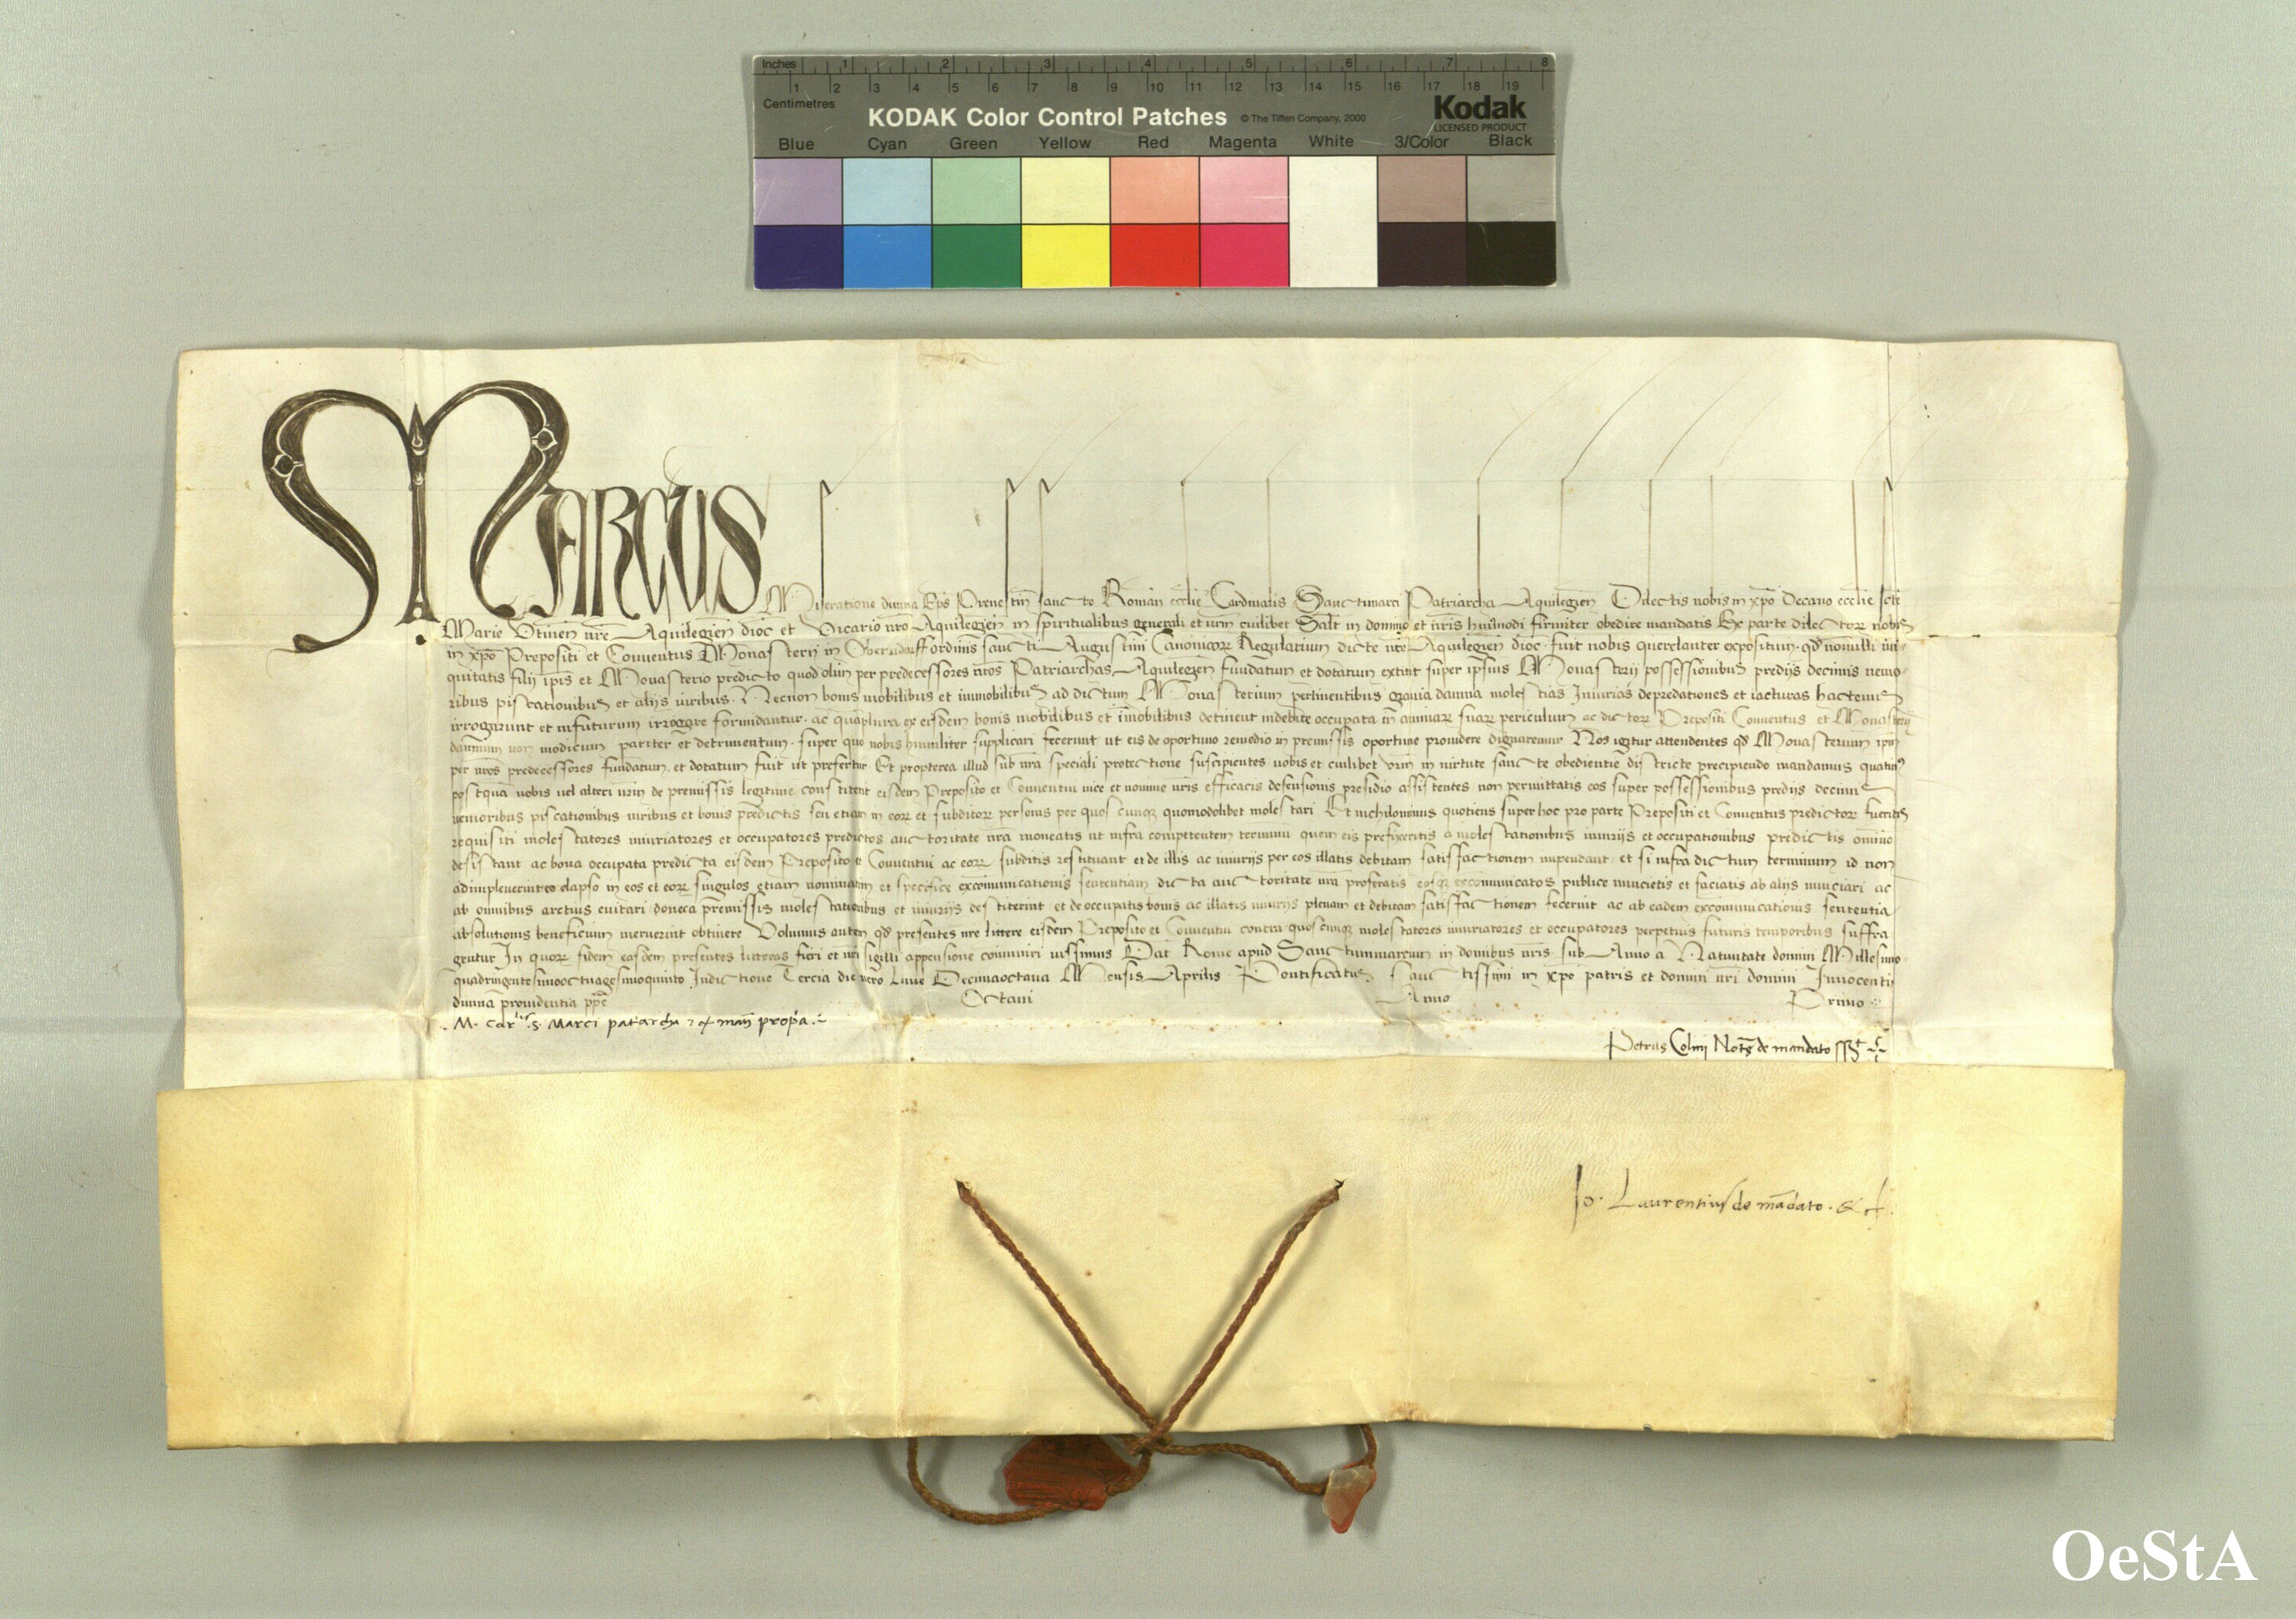 Inches 1 2 3 4 5 6 7 8
Centimetres 1 2 3 4 5 6 7 8 9 10 11 12 13 14 15 16 17 18 19
KODAK Color Control Patches © The Tiffen Company, 2000 Kodak
LICENSED PRODUCT
Blue Cyan Green Yellow Red Magenta White 3/Color Black
MARCUS Miseratione divina Eps Prenestin sancte Roman ecclie Cardinalis Sanctimarci Patriarcha Aquilegien Dilectis nobis in xpo Decano ecclie scte
Marie Utinen nre Aquilegien dioc et Vicario nro Aquilegien in spiritualibus generali et vrm cuilibet Salt in domino et nris huiusmodi firmiter obedire mandatis Ex parte dilector nobis
in xpo Prepositi et Conventus Monasterij in ordinis sancti Augustini Canonicor Regularium dicte nre Aquilegien dioc fuit nobis querelanter expositum qd nonnulli ini
quitatis filij ipis et Monasterio predicto quod olim per predecessores nros Patriarchas Aquilegien fundatum et dotatum extitit super ipsius Monasterij possessionibus predijs decimis nemo
ribus piscationibus et alijs iuribus Necnon bonis mobilibus et immobilibus ad dictum Monasterium pertinentibus gravia damna molestias Iniurias depredationes et iacturas hactenus
irrogarunt et infuturum irrogare formidantur ac quaplura ex eisdem bonis mobilibus et imobilibus detinent indebite occupata in animar suar periculum ac dictor Prepositi Conventus et Monasterij
damnum non modicum pariter et detrimentum super quo nobis humiliter supplicari fecerunt ut eis de oportuno remedio in premissis oportune providere dignaremur Nos igitur attendentes qd Monasterium ipm
per nros predecessores fundatum et dotatum fuit ut prefertur Et propterea illud sub nra speciali protectione suscipientes vobis et cuilibet vrm in virtute sancte obedientie districte precipiendo mandamus quatinus
postqua vobis vel alteri vrm de premissis legitime constiterit eisdem Preposito et Conventui vice et nomine nris efficacis defensionis presidio assistentes non permittatis eos super possessionibus predijs decimis
nemoribus piscationibus iuribus et bonis predictis seu etiam in eor et subditor personis per quoscunque quomodolibet molestari Et nichilominus quotiens super hoc pro parte Prepositi et Conventus predictor fueritis
requisiti molestatores iniuriatores et occupatores predictos auctoritate nra moneatis ut infra competentem terminum quem eis prefixeritis a molestationibus iniurijs et occupationibus predictis omnino
desistant ac bona occupata predicta eisdem Preposito et Conventui ac eor subditis restituant et de illis ac iniurijs per eos illatis debitam satisfactionem impendant et si infra dictum terminum id non
adimpleverint eo elapso in eos et eor singulos etiam nominatim et specifice excomunicationis sententiam dicta auctoritate nra proferatis eosque excomunicatos publice nuncietis et faciatis ab alijs nunciari ac
ab omnibus arctius evitari donec a premissis molestationibus et iniurijs destiterint et de occupatis bonis ac illatis iniurijs plenam et debitam satisfactionem fecerint ac ab eadem excomunicationis sententia
absolutionis beneficium meruerint obtinere Volumus autem qd presentes nre littere eisdem Preposito et Conventui contra quoscunque molestatores iniuriatores et occupatores perpetuis futuris temporibus suffra
gentur In quor fidem easdem presentes litteras fieri et nri sigilli appensione comuniri iussimus Dat Rome apud Sanctummarcum in domibus nris sub Anno a Nativitate domini Millesimo
quadringentesimooctuagesimoquinto Indictione Tercia die vero Lune Decimaoctava Mensis Aprilis Pontificatus sanctissimi in xpo patris et domini nri domini Innocentij
divina providentia ppe Octavi Anno Primo
M. Carlis S. Marci patarcha man propa
Petrus Colinj Nots de mandato
Jo. Laurentius de madato &
OeStA